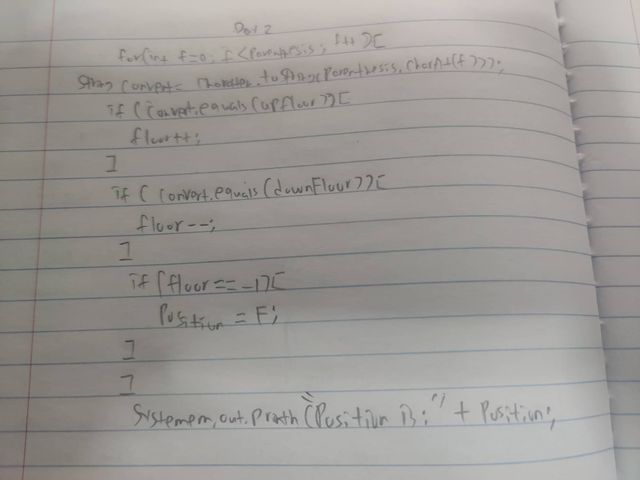 Day 2
for(int f=0; f<Parenthesis; f++)[
String Convert= Character.toString(Parenthesis.CharAt(f)));
if ((Convert.equals(upfloor))[
floor++;
]
if ( Convert.equals(downFloor))[
floor--;
]
if (floor==-1)[
Position = F;
]
]
Systemem,out.println("Position is:") + Position;